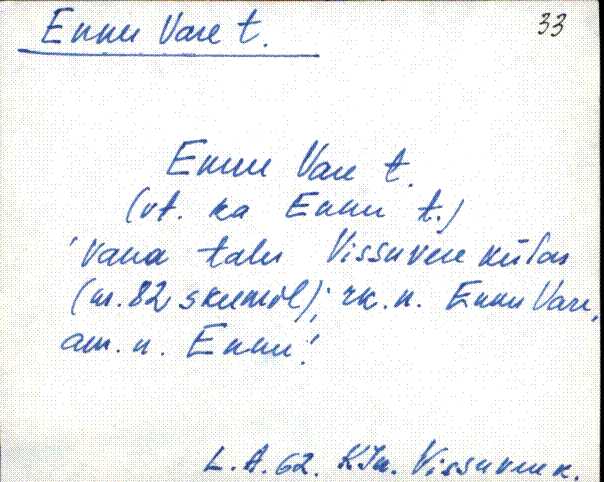 Ennu Vare t.
33
Ennu Vare t.
(vt. ka Ennu t.)
'vana talu Vissuvere külas
(nr. 82 skeemil); rk. n. Ennu Vare,
am. n. Ennu!
L.A. 62. KJn. Vissuvere k.